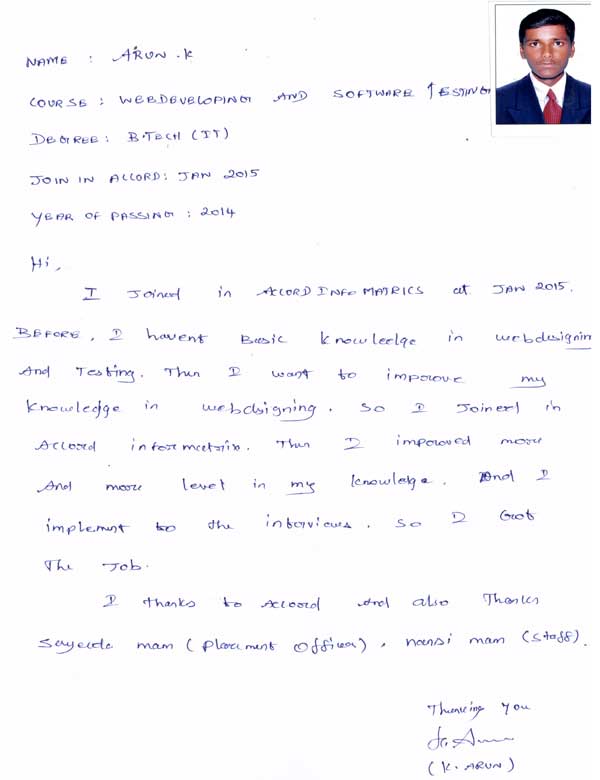 NAME : ARUN .K
COURSE : WEBDEVELOPING AND SOFTWARE TESTING
DEGREE: B.TECH (IT)
JOIN IN ACCORD: JAN 2015
YEAR OF PASSING : 2014
Hi,
I Joined in ACCORD INFOMATRICS at JAN 2015.
BEFORE, I havent Basic knowledge in webdesigning
And Testing. Then I want to improve my
knowledge in webdsigning. So I Joined in
Accord informatrix. Then I improved more
And more level in my knowledge. And I
implement to the interviews. So I Got
The Job.
I thanks to Accord And also Thanks
mam (Placement officer), nansi mam (staff).
Thanking You
(K. ARUN)